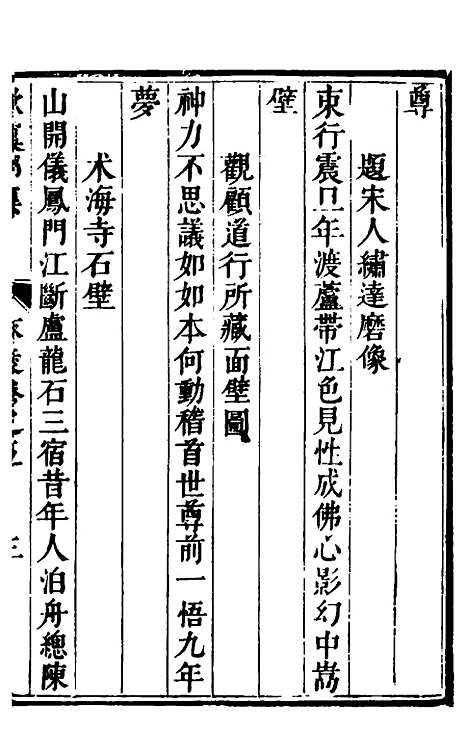 尊
題宋人繡達磨像
東行震旦年渡蘆帶江色見性成佛心影幻中嵵
壁
觀顧道行所藏面壁圖
神力不思議如如本何動稽首世尊前一悟九年
夢
术海寺石壁
山開儀鳳門江斷盧龍石三宿昔年人泊舟總陳